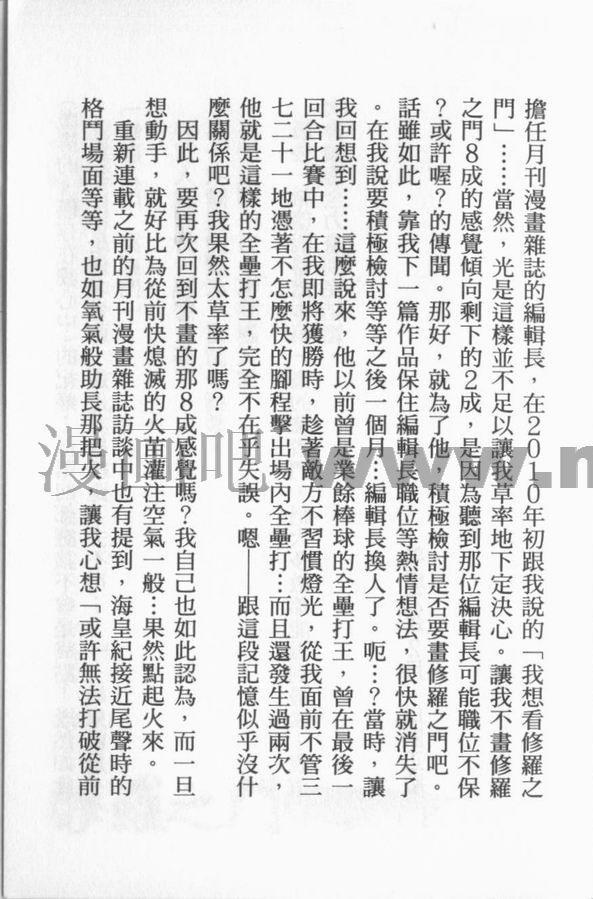 擔任月刊漫畫雜誌的編輯長，在2010年初跟我說的「我想看修羅之
門」……當然，光是這樣並不足以讓我草率地下定決心。讓我不畫修羅
之門8成的感覺傾向剩下的2成，是因為聽到那位編輯長可能職位不保
？或許喔？的傳聞。那好，就為了他，積極檢討是否要畫修羅之門吧。
話雖如此，靠我下一篇作品保住編輯長職位等熱情想法，很快就消失了
。在我說要積極檢討等等之後一個月…編輯長換人了。呃…？當時，讓
我回想到……這麼說來，他以前曾是業餘棒球的全壘打王，曾在最後一
回合比賽中，在我即將獲勝時，趁著敵方不習慣燈光，從我面前不管三
七二十一地憑著不怎麼快的腳程擊出場內全壘打…而且還發生過兩次，
他就是這樣的全壘打王，完全不在乎失誤。嗯——跟這段記憶似乎沒什
麼關係吧？我果然太草率了嗎？
因此，要再次回到不畫的那8成感覺嗎？我自己也如此認為，而一旦
想動手，就好比為從前快熄滅的火苗灌注空氣一般…果然點起火來。
重新連載之前的月刊漫畫雜誌訪談中也有提到，海皇紀接近尾聲時的
格鬥場面等等，也如氧氣般助長那把火，讓我心想「或許無法打破從前
漫画吧 www.n